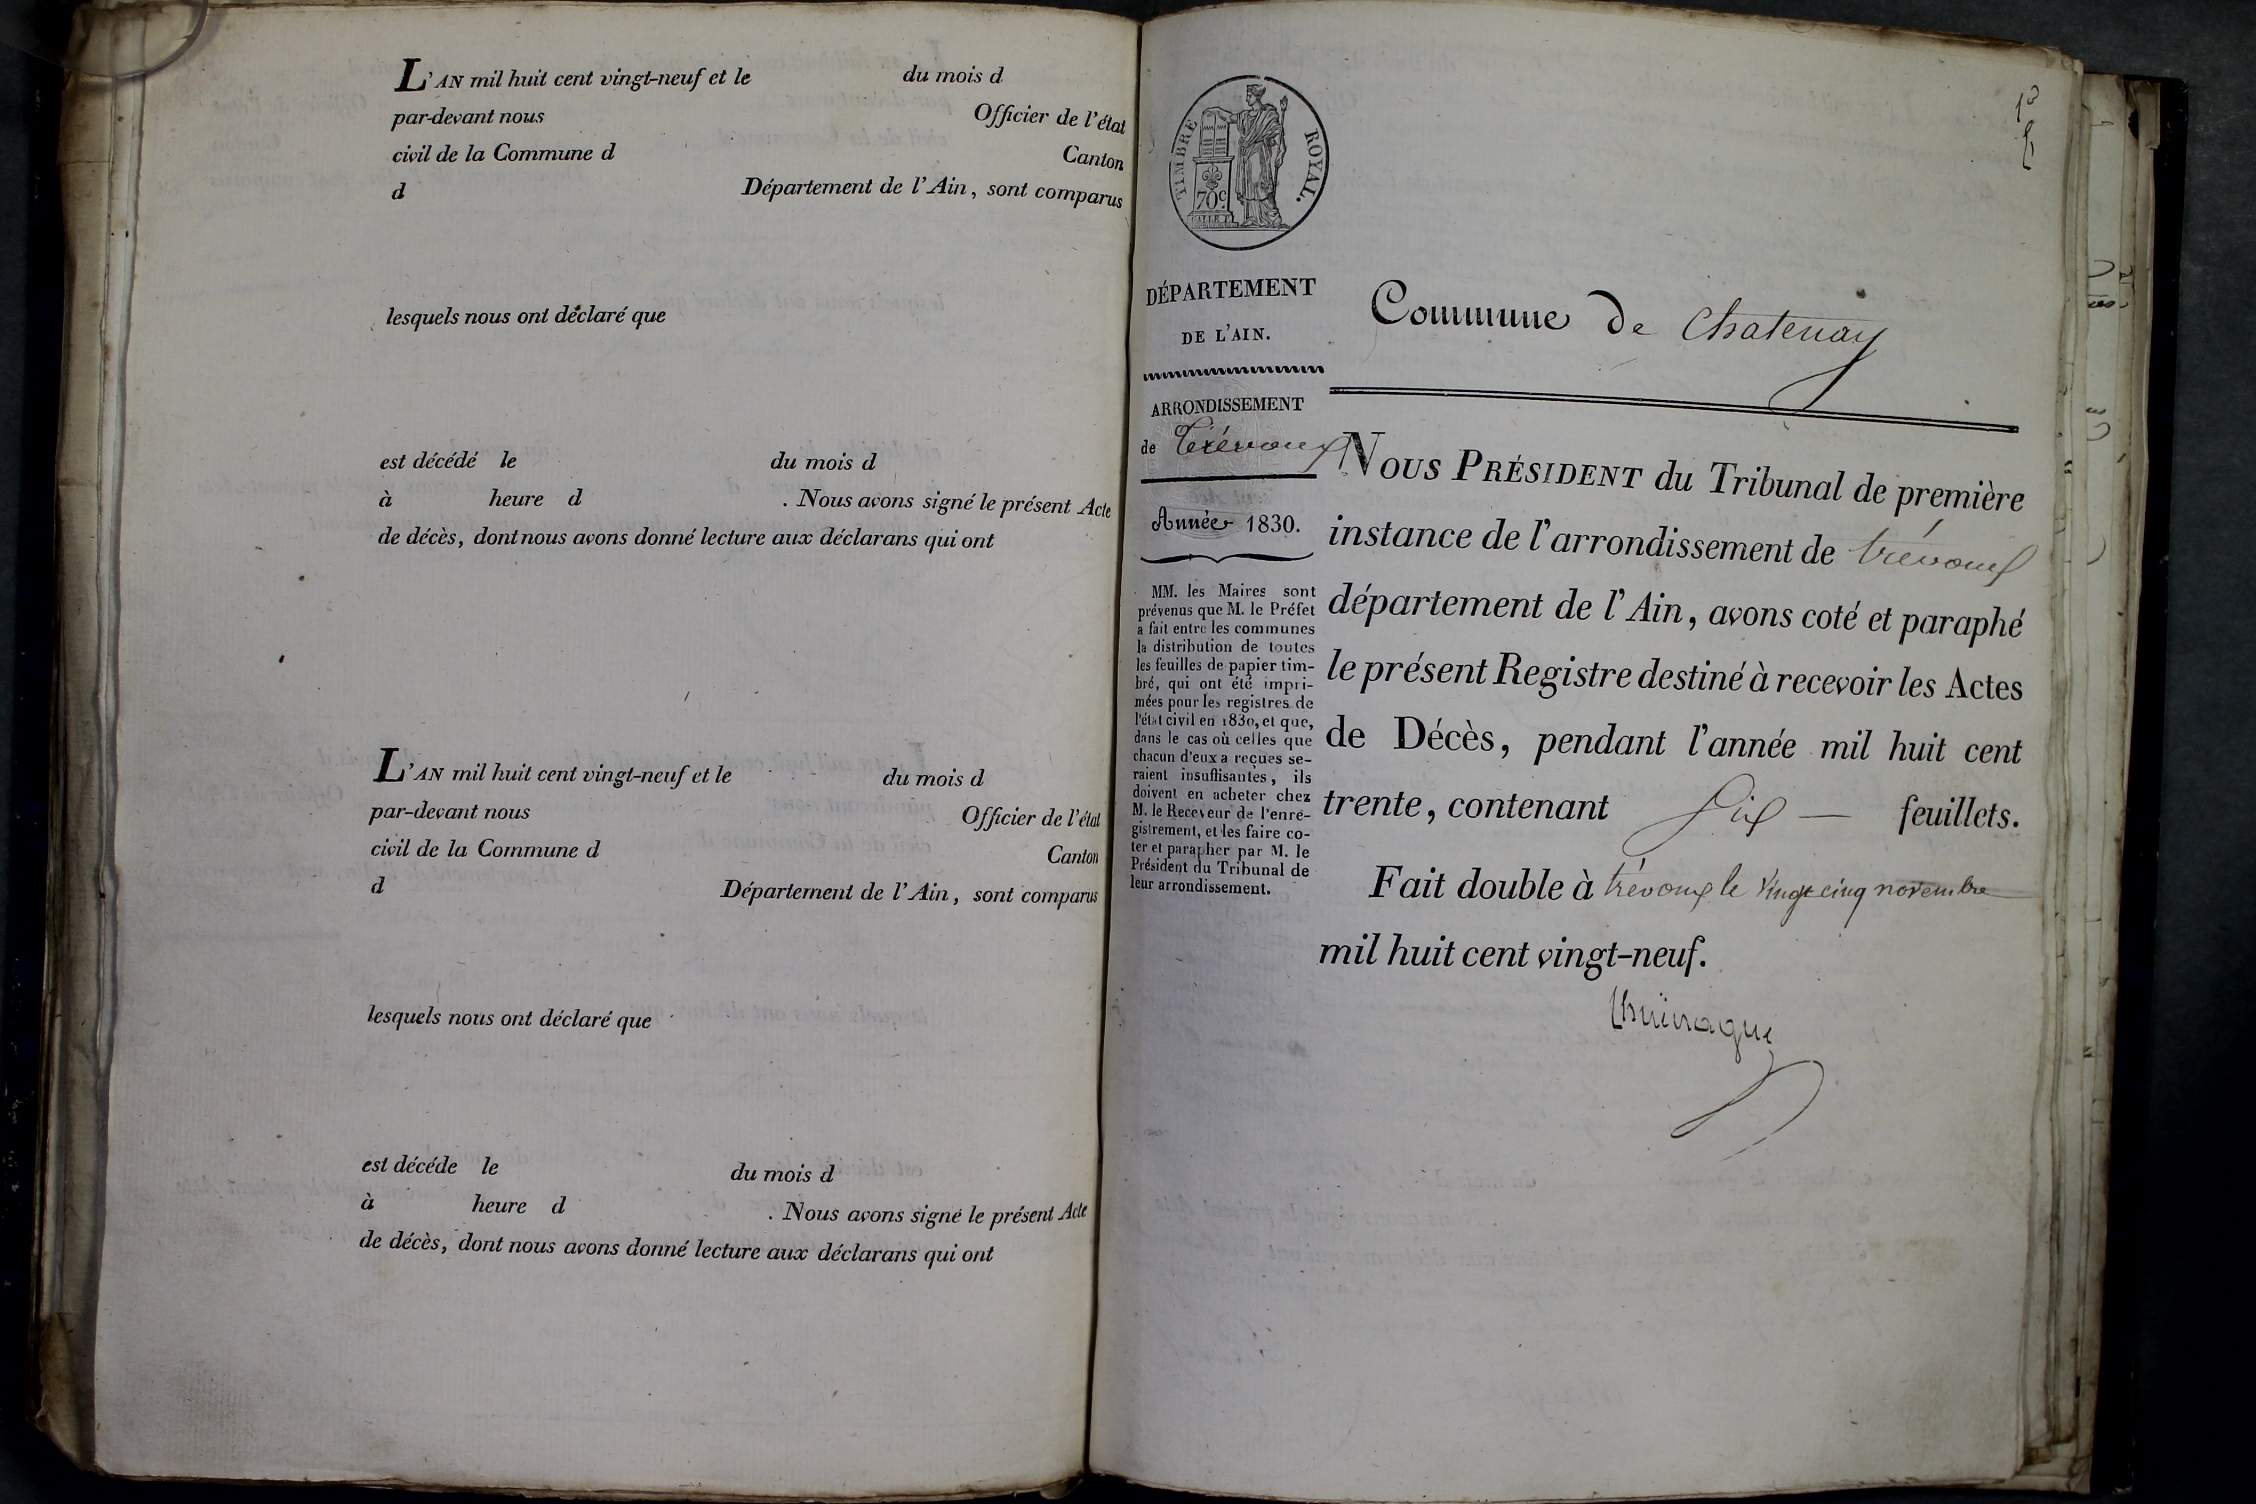 L'AN mil huit cent vingt-neuf et le du mois d
par-devant nous Officier de l'état
civil de la Commune d Canton
d Département de l'Ain, sont comparus
lesquels nous ont déclaré que
est décédé le du mois d
à heure d . Nous avons signé le présent Acte
de décès, dont nous avons donné lecture aux déclarans qui ont
L'AN mil huit cent vingt-neuf et le du mois d
par-devant nous Officier de l'état
civil de la Commune d Canton
d Département de l'Ain, sont comparus
lesquels nous ont déclaré que
est décéde le du mois d
à heure d . Nous avons signé le présent Acte
de décès, dont nous avons donné lecture aux déclarans qui ont
TIMBRE ROYAL.
70c
DÉPARTEMENT
DE L'AIN.
ARRONDISSEMENT
de Trévoux
Année 1830.
MM. les Maires sont
prévenus que M. le Préfet
a fait entre les communes
la distribution de toutes
les feuilles de papier tim-
bré, qui ont été impri-
mées pour les registres de
l'état civil en 1830, et que,
dans le cas où celles que
chacun d'eux a reçues se-
raient insuffisantes, ils
doivent en acheter chez
M. le Receveur de l'enre-
gistrement, et les faire co-
ter et parapher par M. le
Président du Tribunal de
leur arrondissement.
Commune de Chatenay
NOUS PRÉSIDENT du Tribunal de première
instance de l'arrondissement de trévoux
département de l'Ain, avons coté et paraphé
le présent Registre destiné à recevoir les Actes
de Décès, pendant l'année mil huit cent
trente, contenant Six — feuillets.
Fait double à trévoux le vingt cinq novembre
mil huit cent vingt-neuf.